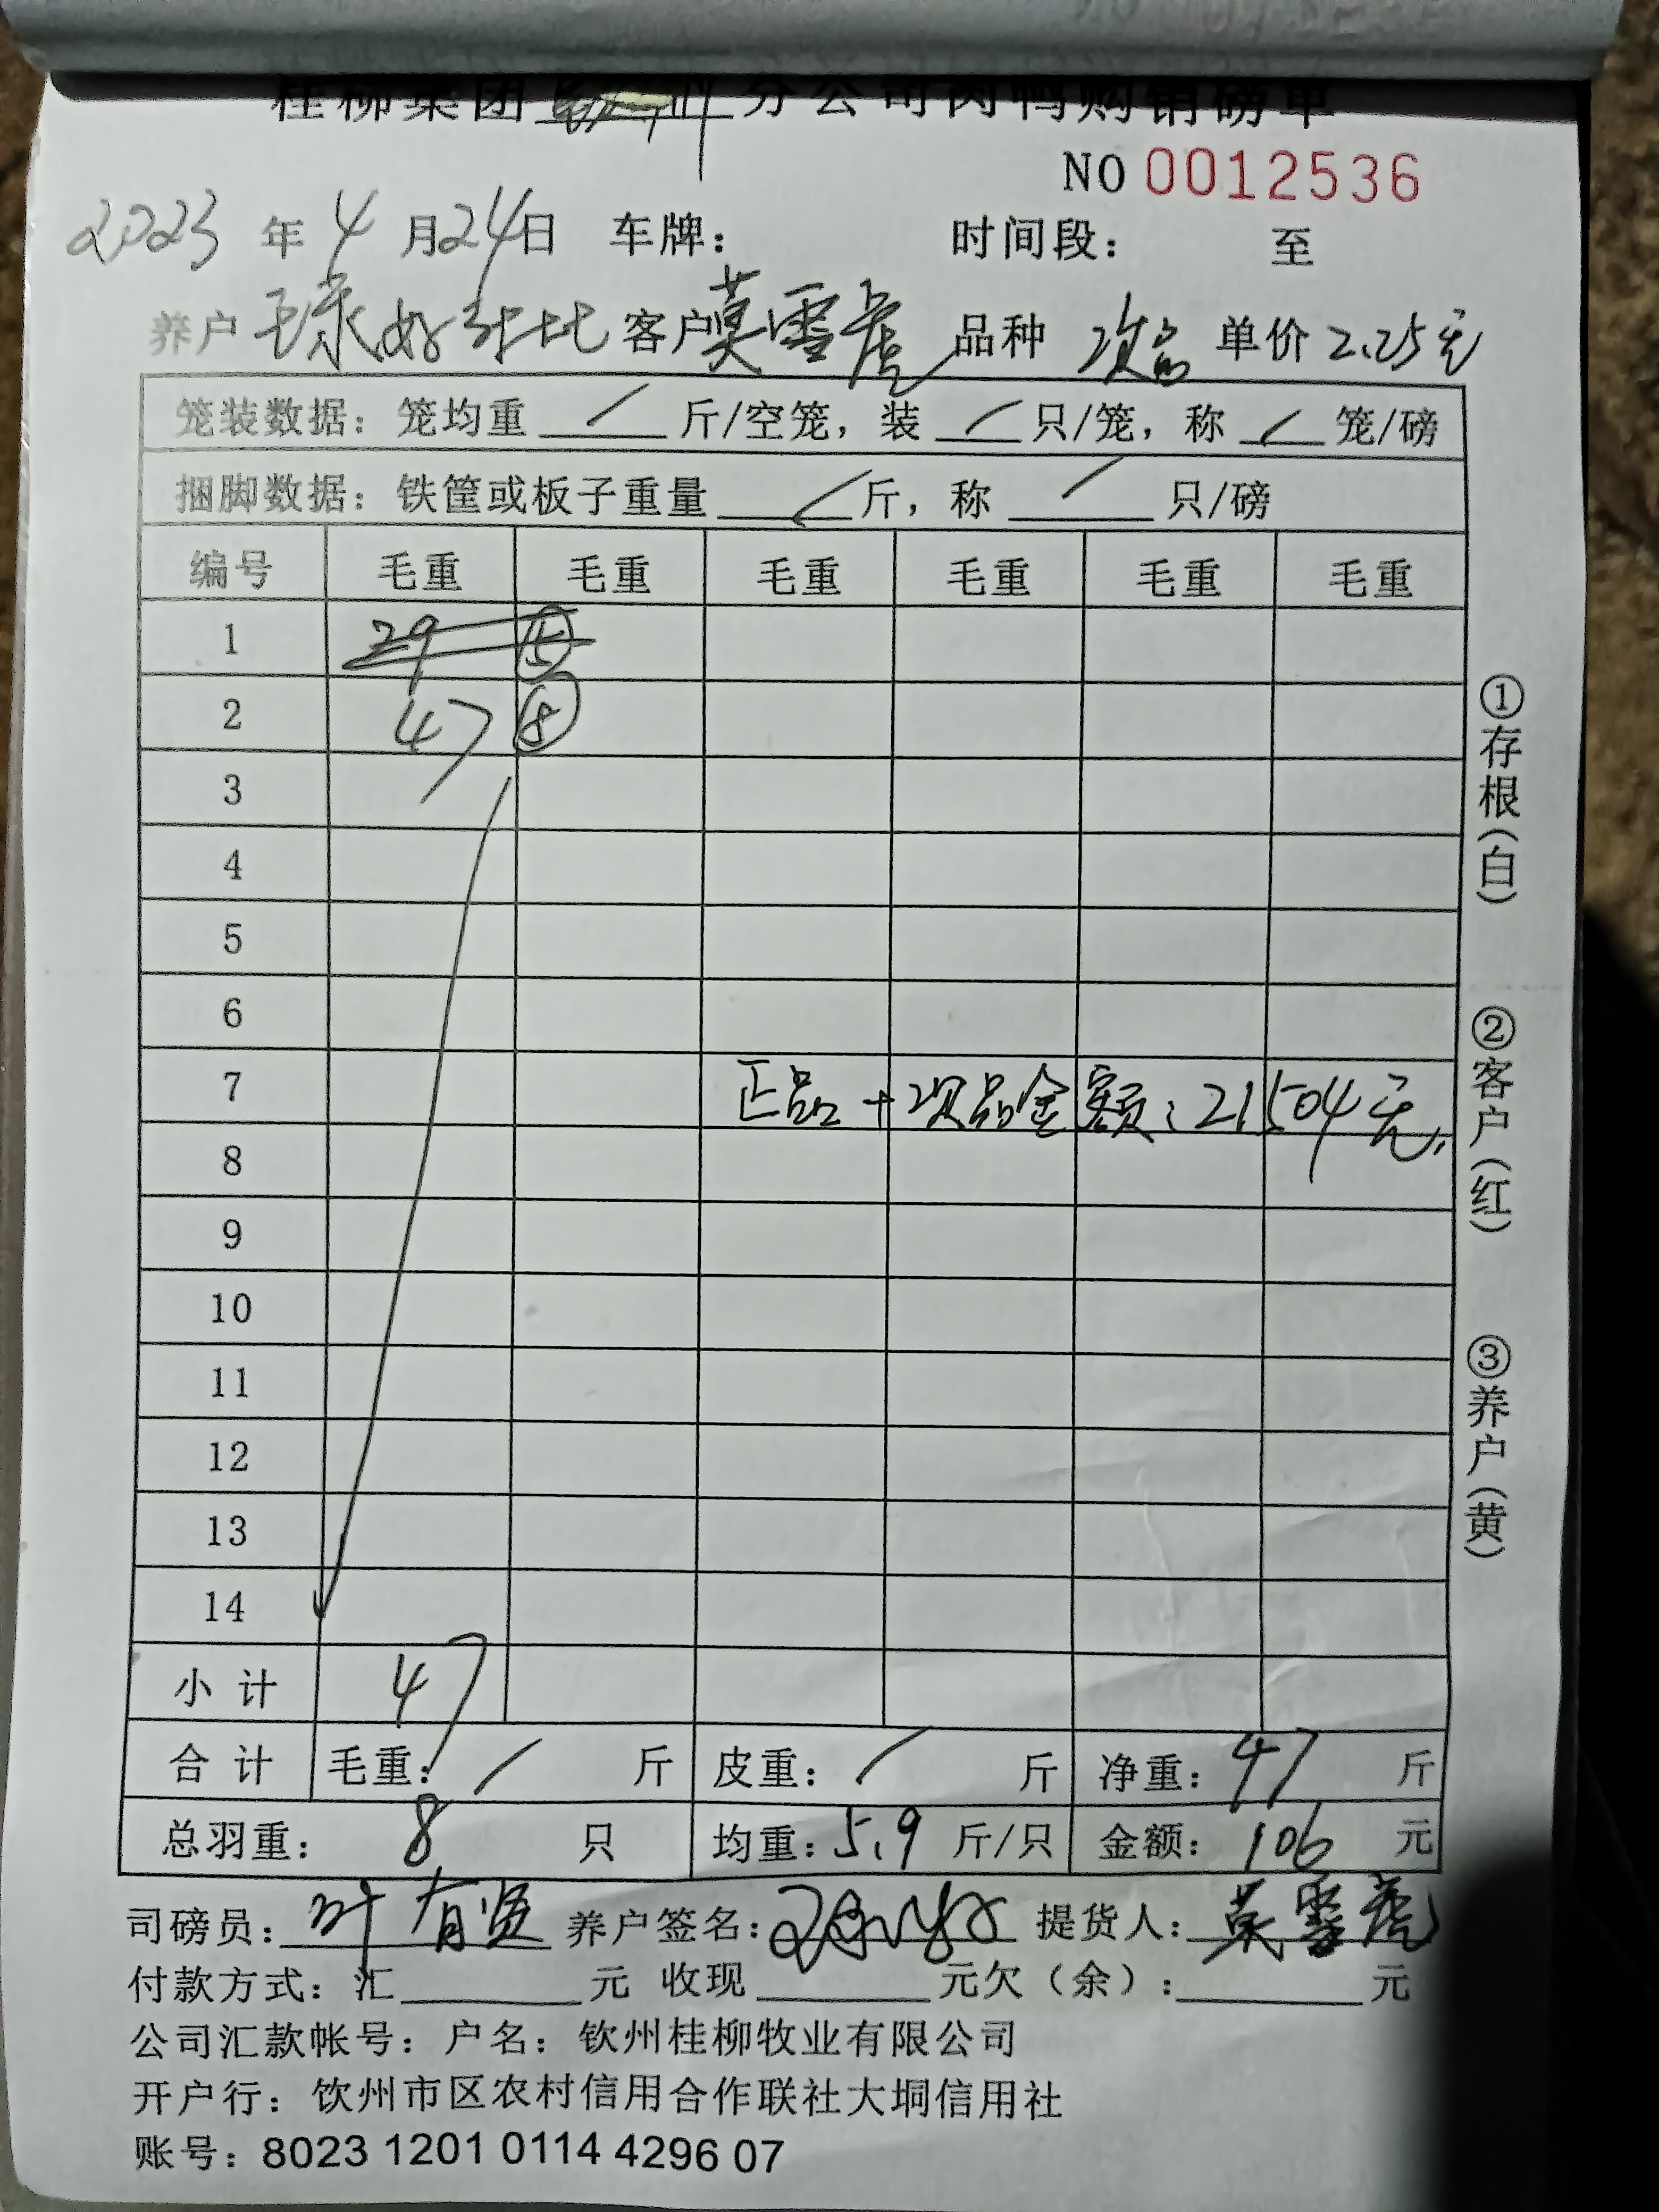 桂柳集团 分公司肉鸭购销磅单
NO 0012536
2023 年 4 月 24 日 车牌： 时间段： 至
养户 客户 莫雪虎 品种 次品 单价 2.25元
笼装数据：笼均重 / 斤/空笼，装 / 只/笼，称 / 笼/磅
捆脚数据：铁筐或板子重量 / 斤，称 / 只/磅
编号 毛重 毛重 毛重 毛重 毛重 毛重
1 29 ⑤
2 47 ⑧
3
4
5
6
7 正品+次品金额：21504元
8
9
10
11
12
13
14
小计 47
合计 毛重： / 斤 皮重： / 斤 净重：47 斤
总羽重： 8 只 均重：5.9 斤/只 金额：106 元
司磅员：叶有贤 养户签名： 提货人：莫雪虎
付款方式：汇 元 收现 元欠（余）： 元
公司汇款帐号：户名：钦州桂柳牧业有限公司
开户行：钦州市区农村信用合作联社大垌信用社
账号：8023 1201 0114 4296 07
①存根（白）
②客户（红）
③养户（黄）